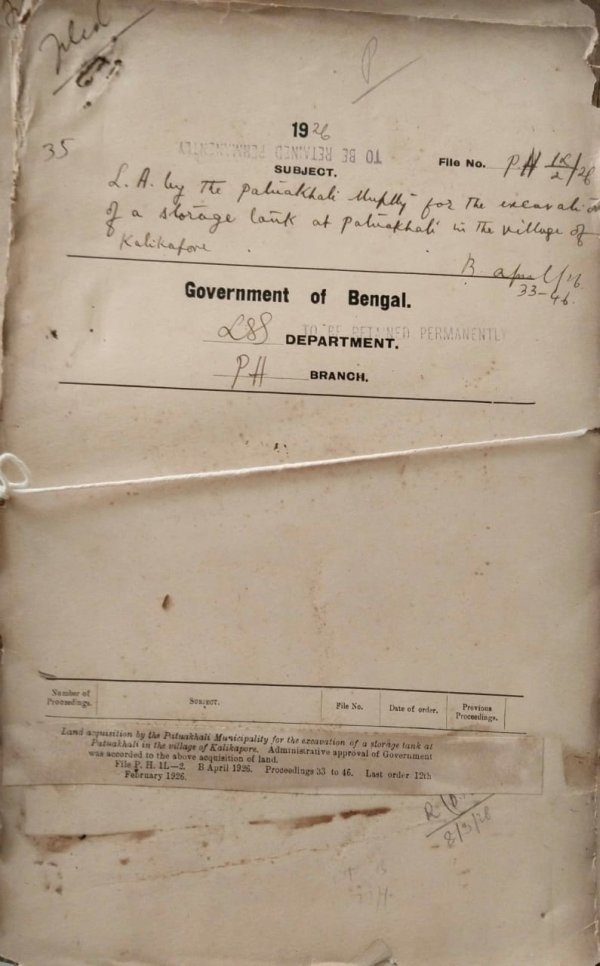 Filed
P
1926
TO BE RETAINED PERMANENTLY
35
SUBJECT.
File No. PH 1L/2/26
L.A. by the Patuakhali Muplty for the excavation
of a storage tank at Patuakhali in the village of
Kalikapore
B. April/26
33-46.
Government of Bengal.
LSG DEPARTMENT.
TO BE RETAINED PERMANENTLY
PH BRANCH.
Number of Proceedings. SUBJECT. File No. Date of order. Previous Proceedings.
Land acquisition by the Patuakhali Municipality for the excavation of a storage tank at
Patuakhali in the village of Kalikapore. Administrative approval of Government
was accorded to the above acquisition of land.
File P. H. 1L—2. B April 1926. Proceedings 33 to 46. Last order 12th
February 1926.
8/3/28